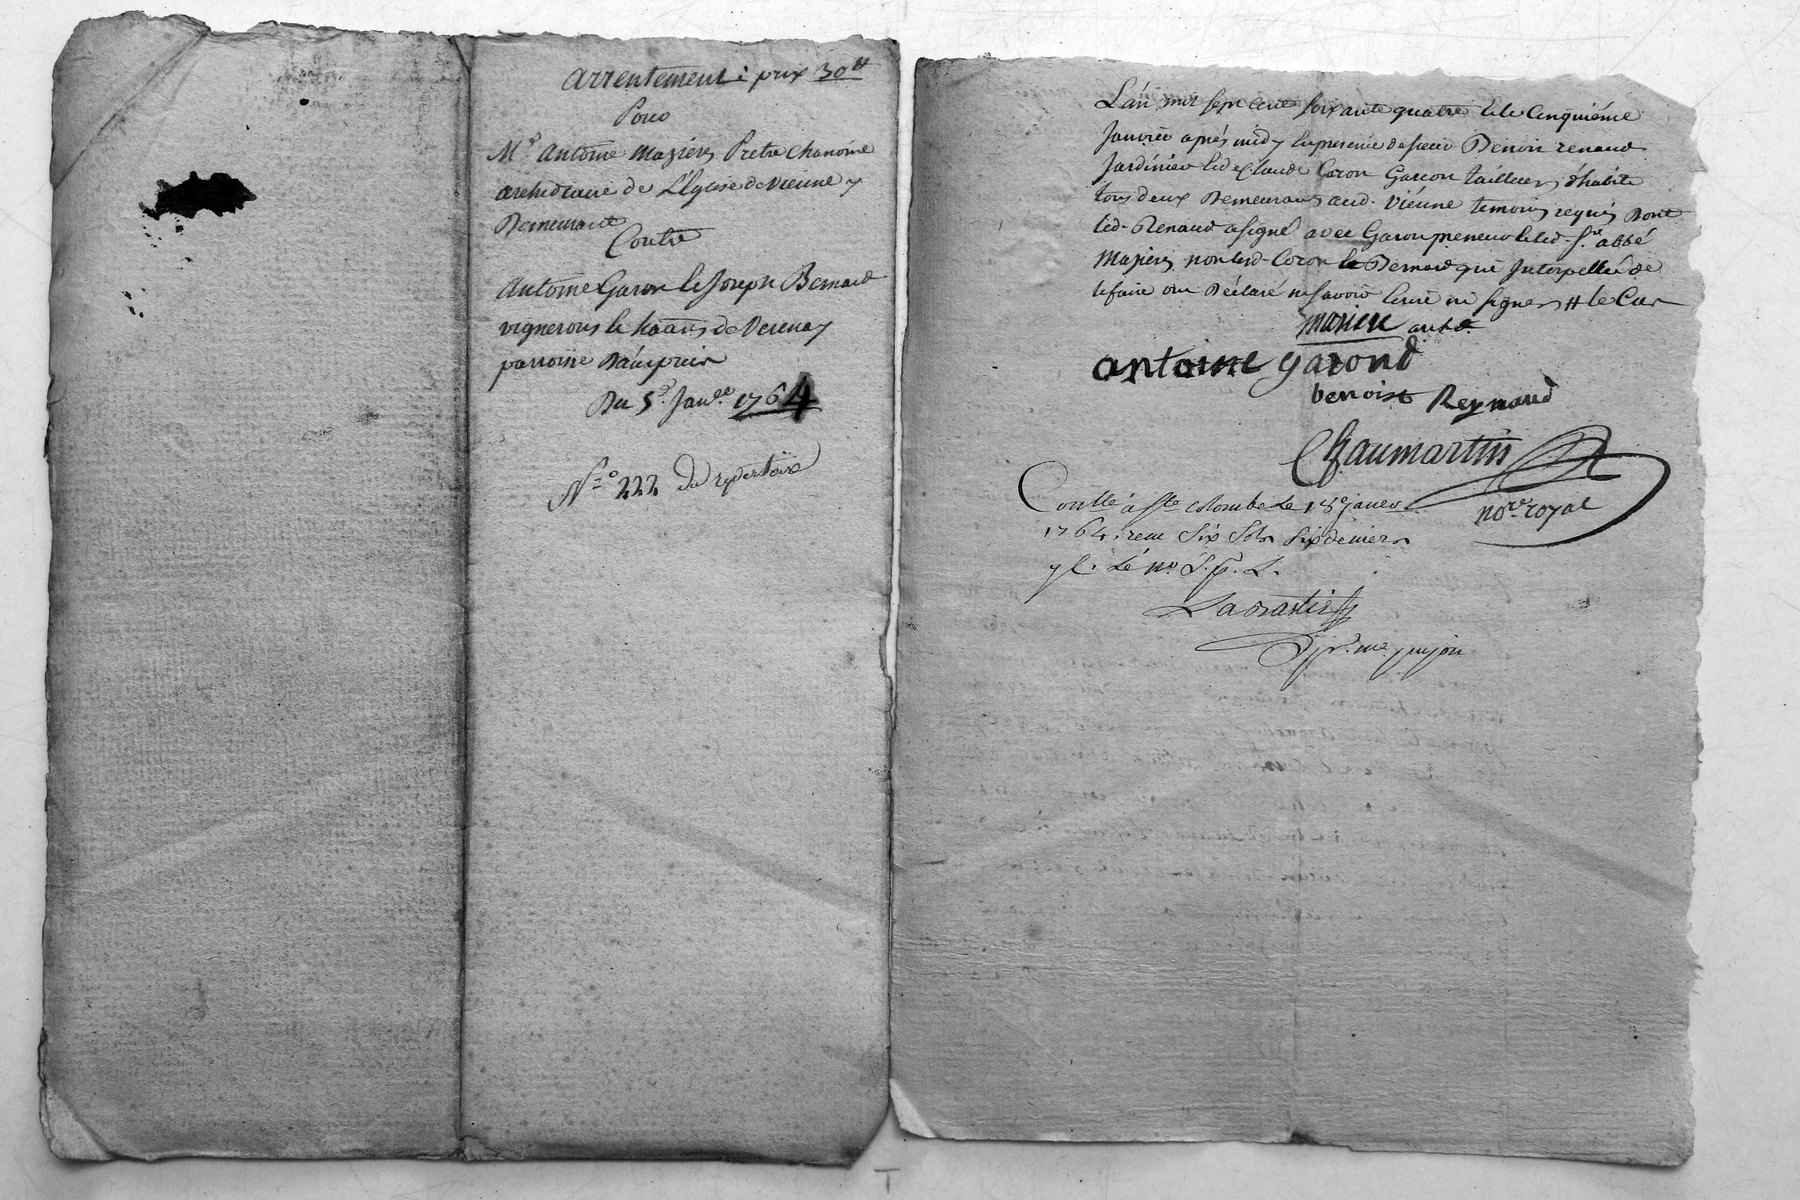 arrentement : prix 30ᵗᵗ
Pour
Mᵉ Antoine Mazieres Pretre Chanoine
archidiacre de L'Eglise de Vienne y
Demeurant
Contre
Antoine Garon & Joseph Bernard
vignerons & hants de Verenay
parroisse D'ampuis
Du 5ᵉ Janvᵉʳ 1764
Nº 222 du repertoire
L'an mil sept cent soixante quatre & le Cinquiéme
Janvier aprés midy en presence de sieur Benoit renaud
Jardinier & de Claude Coron Garcon tailleur d'habits
tous deux Demeurans aud. Viénne temoins requis Dont
led. Renaud a signé avec Garon preneur & led. Sʳ abbé
Mazieres non led. Coron & Bernard qui Interpellés de
le faire ont Déclaré ne savoir Ecrire ni signer
maziere archᵈ
antoine garond
benoist Reynaud
Chaumartin
noʳᵉ royal
Conllé à Ste Colombe Le 18ᵉ janvʳ
1764. reçu Six Sols Six deniers